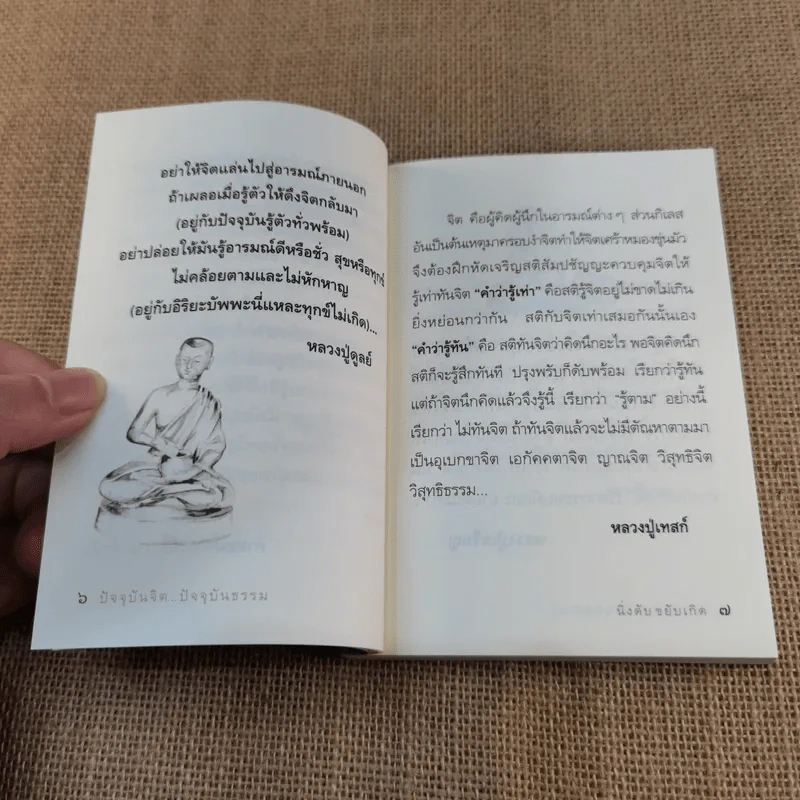 อย่าให้จิตแล่นไปสู่อารมณ์ภายนอก
ถ้าเผลอเมื่อรู้ตัวให้ดึงจิตกลับมา
(อยู่กับปัจจุบันรู้ตัวทั่วพร้อม)
อย่าปล่อยให้มันรู้อารมณ์ดีหรือชั่ว สุขหรือทุกข์
ไม่คล้อยตามและไม่หักหาญ
(อยู่กับอิริยะบัพพะนี่แหละทุกข์ไม่เกิด)...
หลวงปู่ดูลย์
๖ ปัจจุบันจิต..ปัจจุบันธรรม
จิต คือผู้คิดผู้นึกในอารมณ์ต่างๆ ส่วนกิเลส
อันเป็นต้นเหตุมาครอบงำจิตทำให้จิตเศร้าหมองขุ่นมัว
จึงต้องฝึกหัดเจริญสติสัมปชัญญะควบคุมจิตให้
รู้เท่าทันจิต "คำว่ารู้เท่า" คือสติรู้จิตอยู่ไม่ขาดไม่เกิน
ยิ่งหย่อนกว่ากัน สติกับจิตเท่าเสมอกันนั้นเอง
"คำว่ารู้ทัน" คือ สติทันจิตว่าคิดนึกอะไร พอจิตคิดนึก
สติก็จะรู้สึกทันที ปรุงพรับก็ดับพร้อม เรียกว่ารู้ทัน
แต่ถ้าจิตนึกคิดแล้วจึงรู้นี้ เรียกว่า "รู้ตาม" อย่างนี้
เรียกว่า ไม่ทันจิต ถ้าทันจิตแล้วจะไม่มีตัณหาตามมา
เป็นอุเบกขาจิต เอกัคคตาจิต ญาณจิต วิสุทธิจิต
วิสุทธิธรรม...
หลวงปู่เทสก์
นิ่งดับ ขยับเกิด ๗